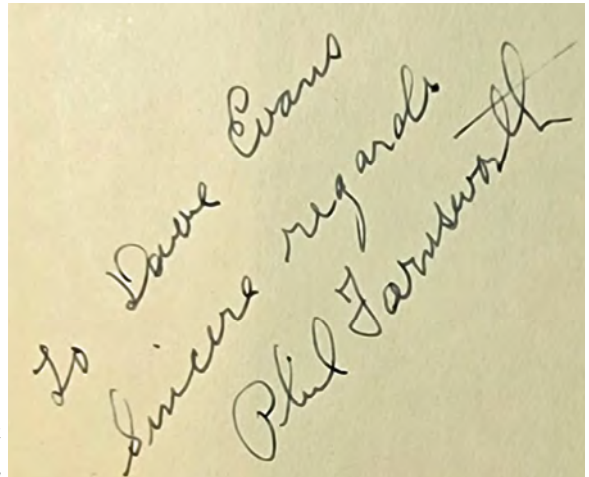 To Dave Evans
Sincere regards
Phil Farnsworth